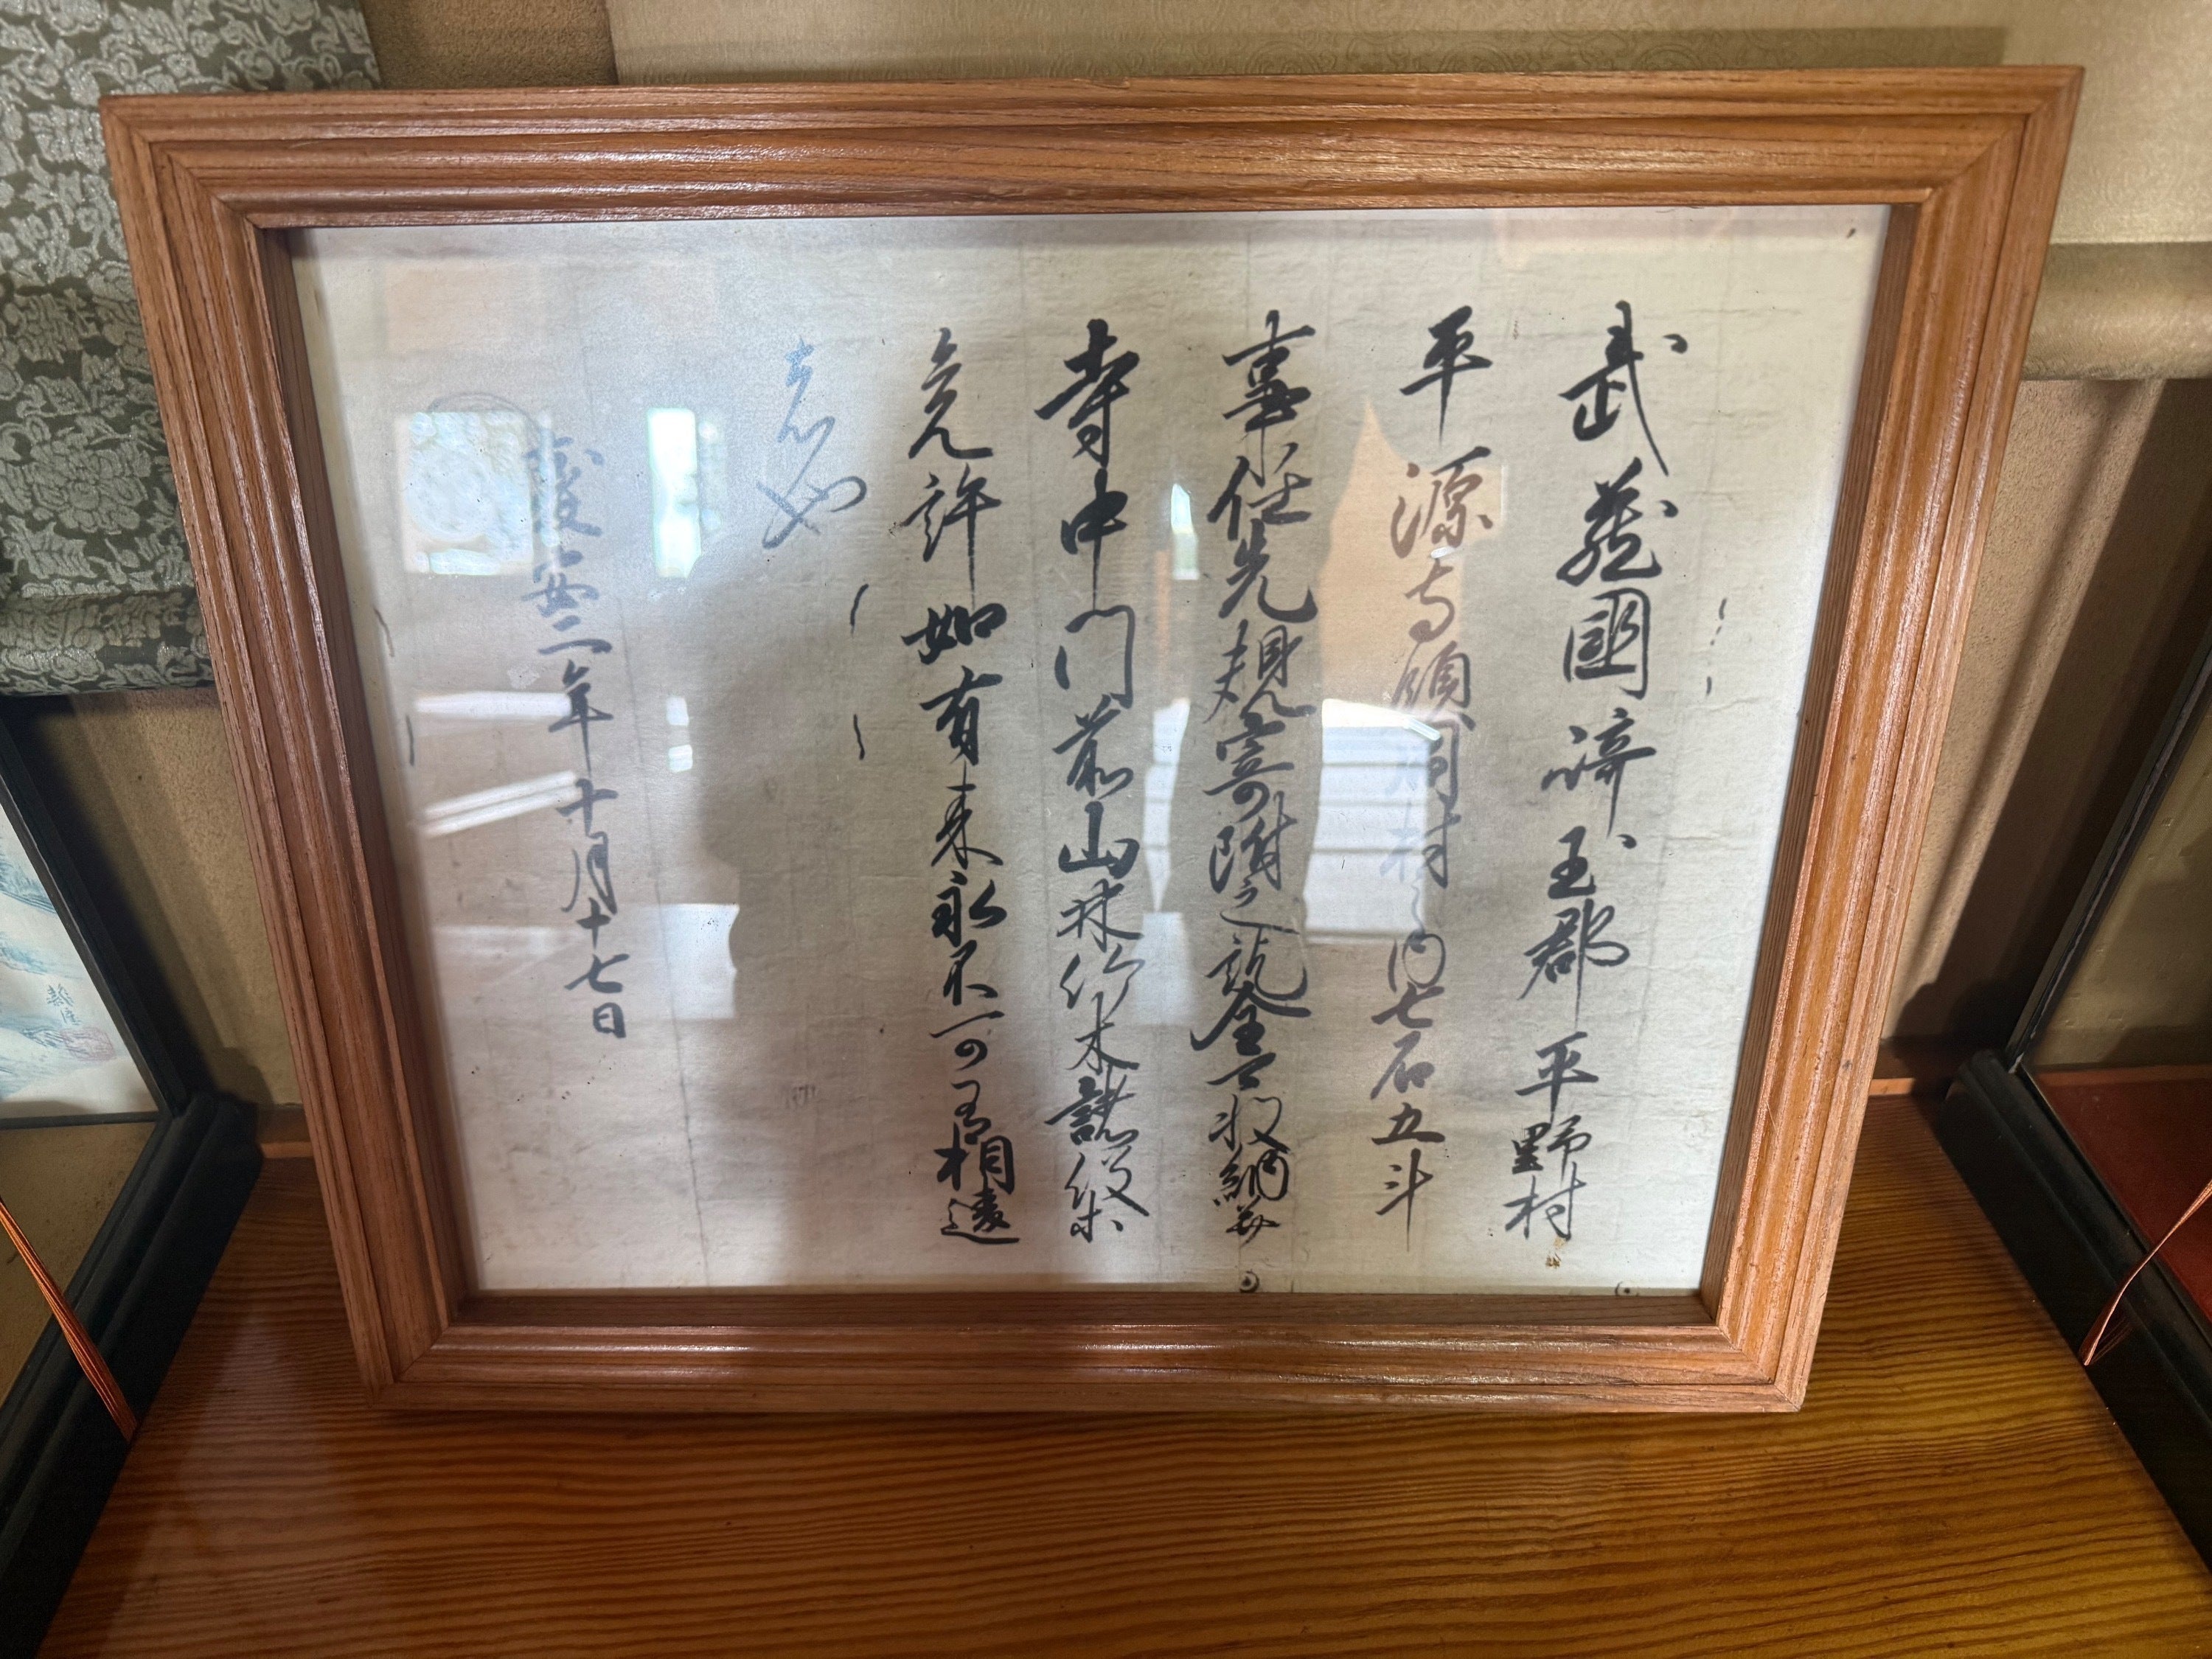 武藏國崎玉郡平野村
平源寺領同村之内七石五斗
事任先規寄附之訖全可収納并
寺中門前山林竹木諸役等
免許如有来永不可有相違
者也
慶安二年十月十七日